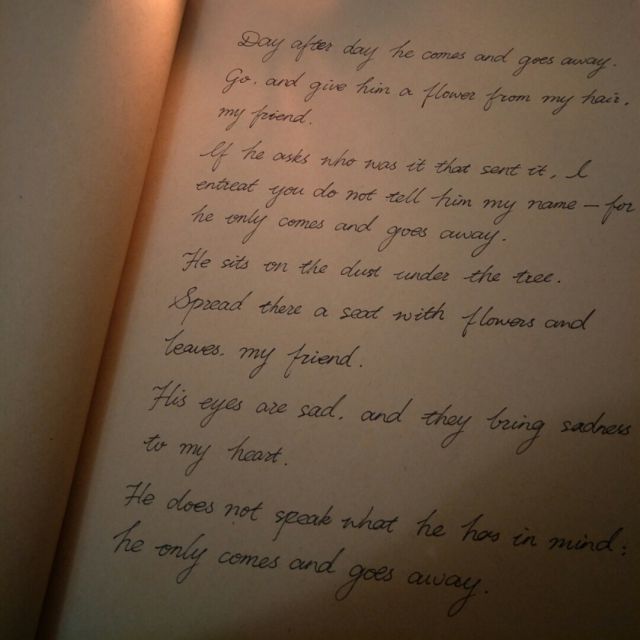 Day after day he comes and goes away.
Go, and give him a flower from my hair,
my friend.
If he asks who was it that sent it, I
entreat you do not tell him my name – for
he only comes and goes away.
He sits on the dust under the tree.
Spread there a seat with flowers and
leaves, my friend.
His eyes are sad, and they bring sadness
to my heart.
He does not speak what he has in mind;
he only comes and goes away.